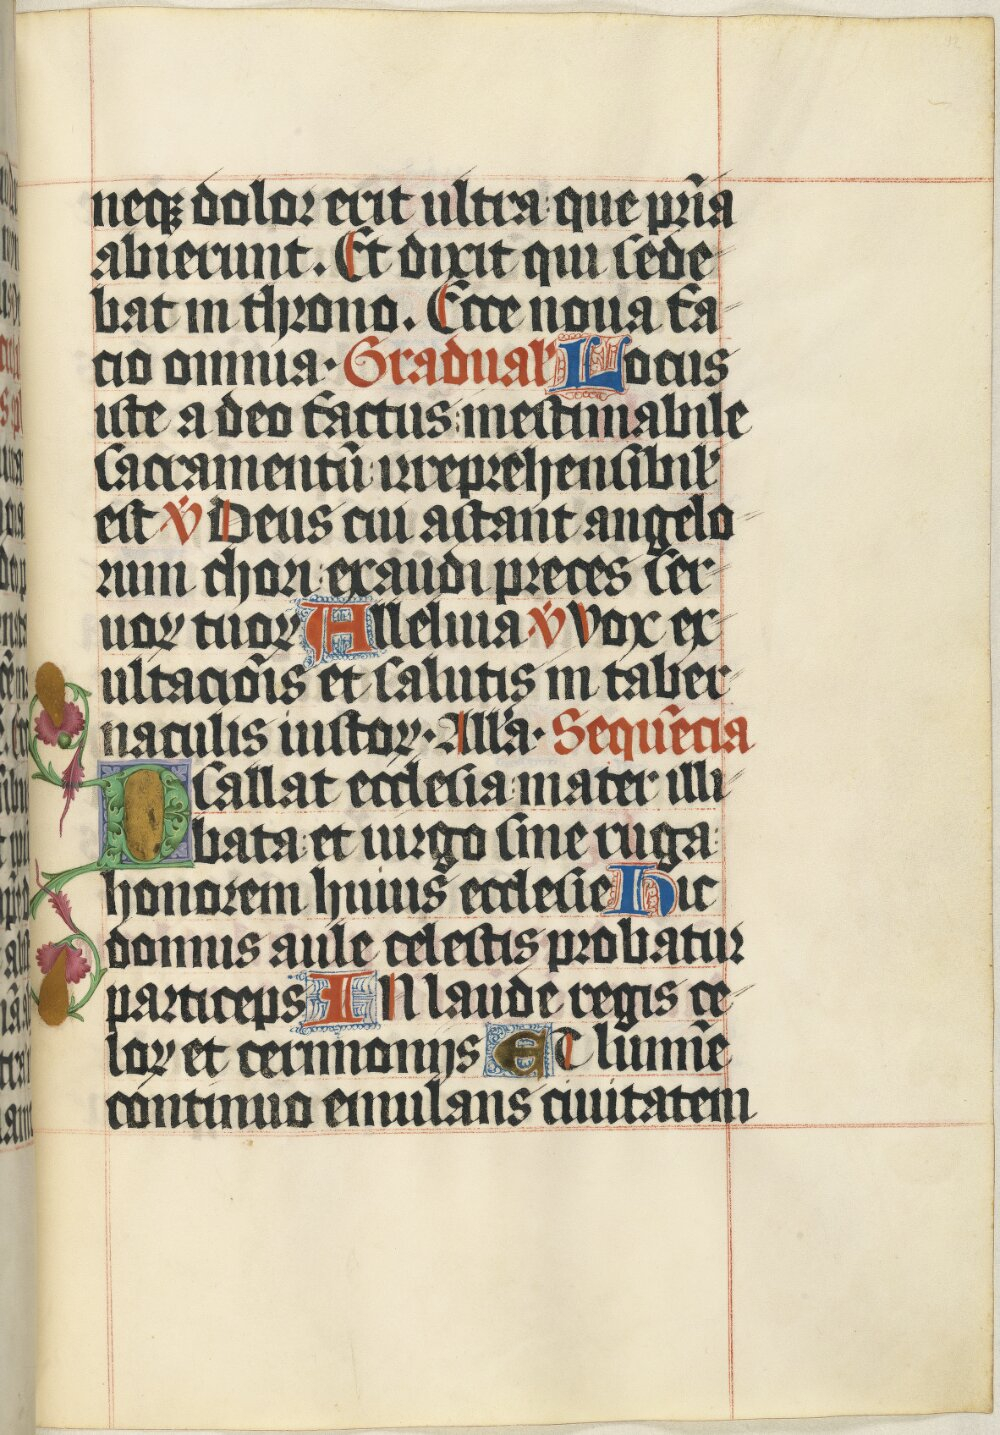 neqꝫ dolor erit ultra que pri̅a
abierunt. Et dixit qui sede
bat in throno. Ecce noua fa
cio omnia. Gradual' Locus
iste a deo factus inestimabile
sacramentu̅ irreprehensibil'
est v̇ Deus cui astant angelo
rum chori exaudi preces ser
uoꝝ tuoꝝ Alleluia v̇ Vox ex
ultacio̅is et salutis in taber
naculis iustoꝝ. All'a. Seque̅cia
Psallat ecclesia mater illi
bata et uirgo sine ruga
honorem huius ecclesie Hic
domus aule celestis probatur
particeps IN laude regis ce
loꝝ et cerimonijs ET lumi̅e
continuo emulans ciuitatem